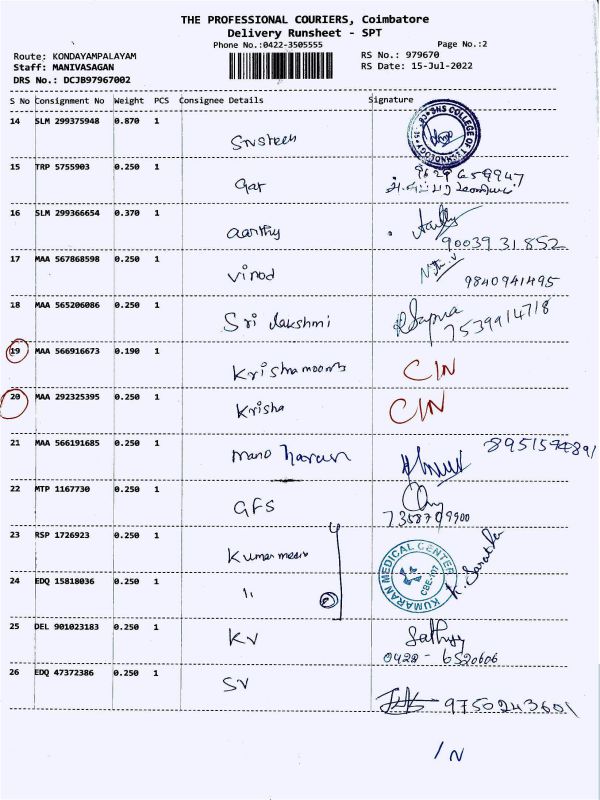 THE PROFESSIONAL COURIERS, Coimbatore
Delivery Runsheet - SPT
Phone No.:0422-3505555 Page No.:2
Route: KONDAYAMPALAYAM RS No.: 979670
Staff: MANIVASAGAN RS Date: 15-Jul-2022
DRS No.: DCJB97967002
S No Consignment No Weight PCS Consignee Details Signature
14 SLM 299375948 0.870 1
SNS COLLEGE OF TECHNOLOGY
15 TRP 5755903 0.250 1 9629659947
16 SLM 299366654 0.370 1 aarthy
90039 31 852
17 MAA 567868598 0.250 1 vinod
9840941495
18 MAA 565206086 0.250 1 Sri lakshmi
7539914718
19 MAA 566916673 0.190 1 CIN
20 MAA 292325395 0.250 1 Krisha CIN
21 MAA 566191685 0.250 1 mano
22 MTP 1167730 0.250 1 GFS
23 RSP 1726923 0.250 1 Kumar
KUMARAN MEDICAL CENTER
CBE-107
24 EDQ 15818036 0.250 1 11
25 DEL 901023183 0.250 1 KV Sathya
0422 - 6520606
26 EDQ 47372386 0.250 1 SV
9750243601
1 N